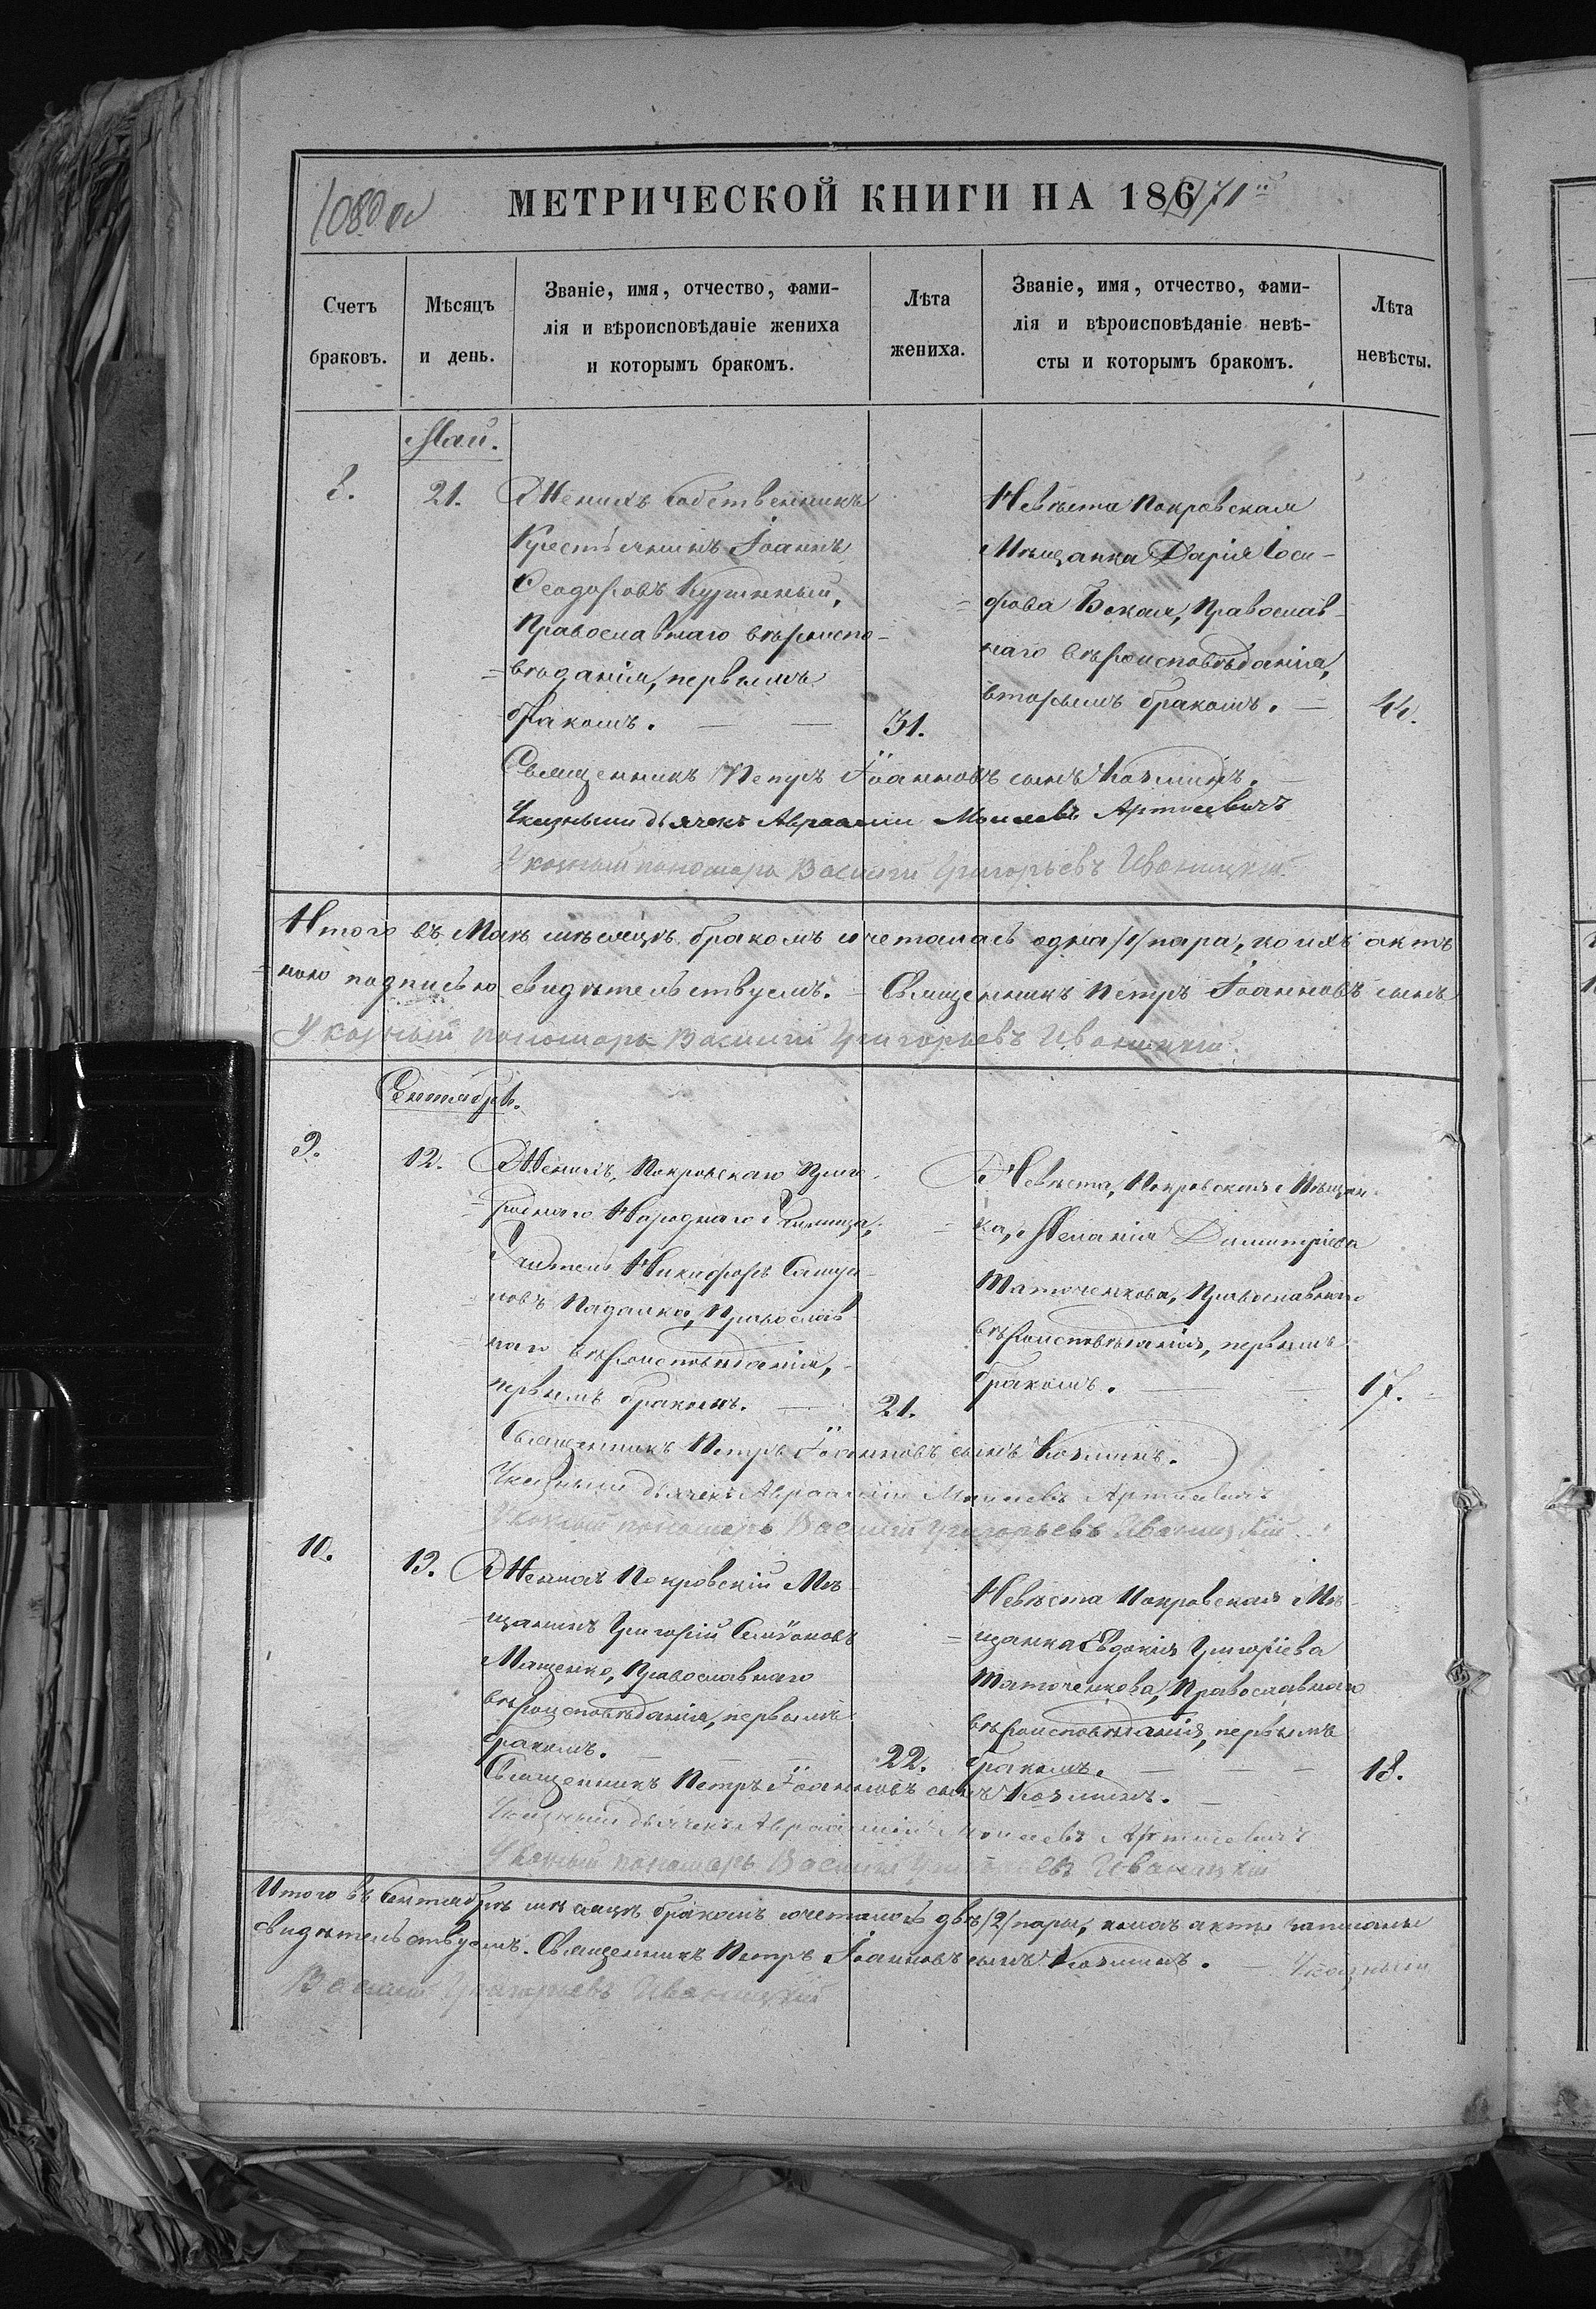 1080 об
МЕТРИЧЕСКОЙ КНИГИ НА 186 71й
Счетъ браковъ.
Мѣсяцъ и день.
Званіе, имя, отчество, фами-
лія и вѣроисповѣданіе жениха
и которымъ бракомъ.
Лѣта жениха.
Званіе, имя, отчество, фами-
лія и вѣроисповѣданіе невѣ-
сты и которымъ бракомъ.
Лѣта невѣсты.
Май.
8.
21.
Женихъ собственникъ
Крестьянинъ Іоаннъ
Ѳеодоровъ
Православнаго вѣроиспо-
вѣданія, первымъ
бракомъ.
31.
Невѣста Покровская
Мѣщанка Дарія Іоси-
фова Бокая, Православ-
наго вѣроисповѣданія,
вторымъ бракомъ.
44.
Священникъ Петръ Іоанновъ сынъ Козминъ.
Указный дьячекъ Авраамій Моисеевъ
Указный пономарь Василій Григорьевъ Иваницкій
Итого въ Маѣ мѣсяцѣ бракомъ сочеталась одна /1/ пара, коихъ актъ
ною подписью свидѣтельствуемъ. Священникъ Петръ Іоанновъ сынъ
Указный пономарь Василій Григорьевъ Иваницкій.
Сентябрь.
9.
12.
Женихъ, Покровскаго Приго-
роднаго Народнаго Училища,
Учитель Никифоръ
Падалка, Православ-
наго вѣроисповѣданія,
первымъ бракомъ.
21.
Невѣста, Покровская Мѣщан-
ка, Меланія Димитріева
Таточенкова, Православнаго
вѣроисповѣданія, первымъ
бракомъ.
17.
Священникъ Петръ Іоанновъ сынъ Козминъ.
Указный дьячекъ Авраамій Моисеевъ
Указный пономарь Василій Григорьевъ Иваницкій
10.
13.
Женихъ Покровскій Мѣ-
щанинъ Григорій Симеоновъ
Мащенко, Православнаго
вѣроисповѣданія, первымъ
бракомъ.
22.
Невѣста Покровская Мѣ-
щанка Евдокія Григоріева
Таточенкова, Православнаго
вѣроисповѣданія, первымъ
бракомъ.
18.
Священникъ Петръ Іоанновъ сынъ Козминъ.
Указный дьячекъ Авраамій Моисеевъ
Указный пономарь Василій Григорьевъ Иваницкій
Итого въ Сентябрѣ мѣсяцѣ бракомъ сочеталось двѣ /2/ пары, коихъ акты записаны
свидѣтельствуемъ. Священникъ Петръ Іоанновъ сынъ Козминъ. Указный
Василій Григорьевъ Иваницкій